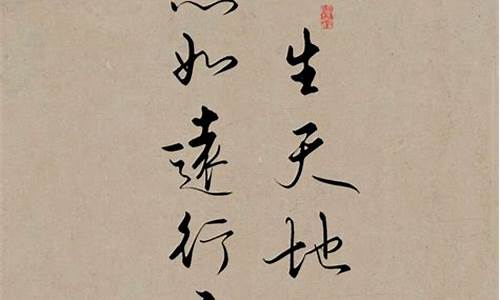 生天地
如遠行